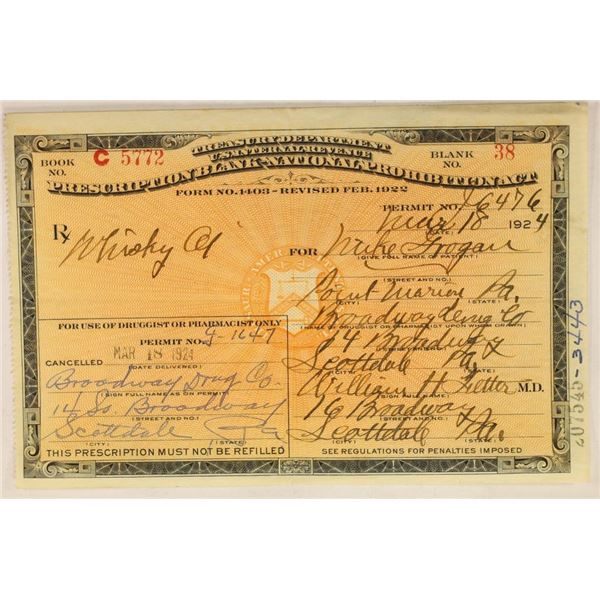 TREASURY DEPARTMENT
U.S. INTERNAL REVENUE
BOOK NO. C 5772
BLANK NO. 38
PRESCRIPTION BLANK-NATIONAL PROHIBITION ACT
FORM NO. 1403-REVISED FEB. 1922
PERMIT NO. 26476
Mar. 18 1924
(DATE)
Rx Whisky
FOR Mike Grogan
(GIVE FULL NAME OF PATIENT)
(STREET AND NO.)
Point Marion Pa.
(CITY) (STATE)
Broadway Drug Co
(NAME OF DRUGGIST OR PHARMACIST UPON WHOM DRAWN)
14 Broadway
(STREET AND NO.)
Scottdale Pa
(CITY) (STATE)
William H. Fetter M.D.
(SIGN FULL NAME)
16 Broadway
(STREET AND NO.)
Scottdale Pa.
(CITY) (STATE)
SEE REGULATIONS FOR PENALTIES IMPOSED
FOR USE OF DRUGGIST OR PHARMACIST ONLY
PERMIT NO. y-1647
CANCELLED MAR 18 1924
(DATE DELIVERED)
Broadway Drug Co.
(SIGN FULL NAME AS ON PERMIT)
14 So. Broadway
(STREET AND NO.)
Scottdale Pa
(CITY) (STATE)
THIS PRESCRIPTION MUST NOT BE REFILLED
207545-3443